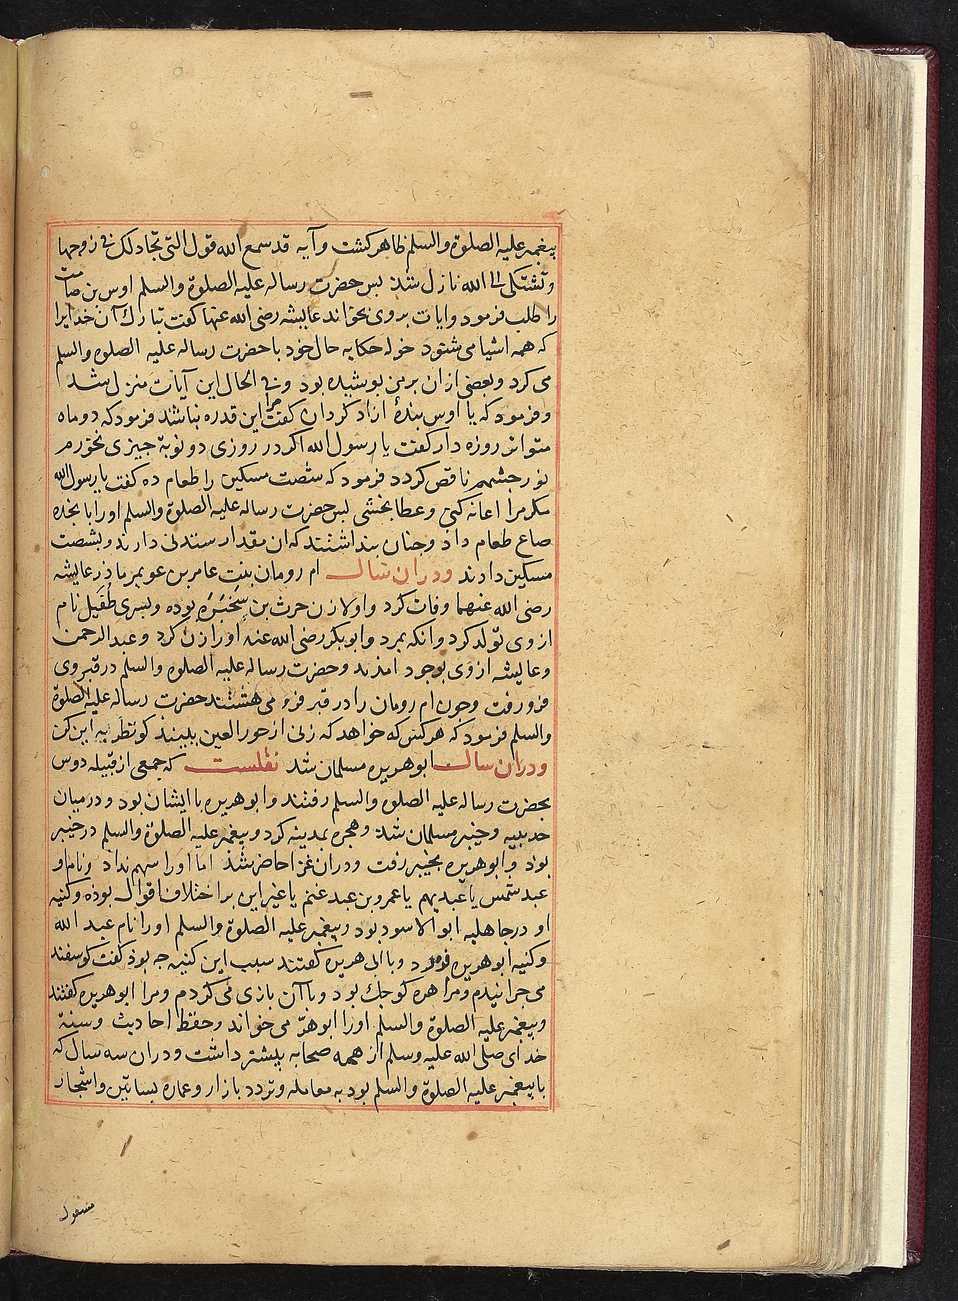 پیغمبر علیه الصلوة والسلم ظاهر کشت و آیه قد سمع الله قول التی تجادلک فی زوجها
وتشتکی الی الله نازل شد بس حضرت رساله علیه الصلوة والسلم اوس بن صامت
را طلب فرمود و ایات بر وی بخواند عایشه رضی الله عنها کفت تبارک آن خدایرا
که همه اشیا می شنود خوله حکایه حال خود با حضرت رساله علیه الصلوه والسلم
می کرد و بعضی از ان بر من بوشیده بود و فی الحال این آیات منزل شد
و فرمود که یا اوس بندهٔ ازاد کردان کفت مرا این قدره نباشد فرمود که دو ماه
متواتر روزه دار کفت یا رسول الله اکر در روزی دو نوبة جیزی نخورم
نور جشمم ناقص کردد فرمود که شصت مسکین را طعام ده کفت یا رسول الله
مکر مرا اعانه کنی و عطا بخشی بس حضرت رساله علیه الصلوة والسلم اورا بانجده
صاع طعام داد و جنان بنداشتند که ان مقدار ستدنی دارند و بشصت
مسکین دادند ودران سال ام رومان بنت عامر بن عویمر مادر عایشه
رضی الله عنهما وفات کرد و اول زن حرث بن سخبره بوده و بسری طفیل نام
از وی تولد کرد و انکه بمرد و ابو بکر رضی الله عنه اورا زن کرد و عبد الرحمن
و عایشه از وی بوجود امدند و حضرت رساله علیه الصلوه والسلم در قبر وی
فرو رفت وجون ام رومان را در قبر فرو می هشتند حضرت رساله علیه الصلوة
والسلم فرمود که هر کس که خواهد که زنی از حور العین بیند کو نظر به این کن
ودران سال ابو هریره مسلمان شد نقلست که جمعی از قبیله دوس
بحضرت رساله علیه الصلوه والسلم رفتند و ابو هریره با ایشان بود و در میان
حدیبیه و خیبر مسلمان شد و هجره بمدینه کرد و پیغمبر علیه الصلوة والسلم در خیبر
بود و ابو هریره بخیبر رفت و دران غزا حاضر شد اما اورا سهم نداد و نام او
عبد شمس یا عبد نهم یا عمرو بن عبد غنم یا غیر این بر اختلاف اقوال بوده و کنیه
او در جاهلیه ابو الاسود بود و پیغمبر علیه الصلوة والسلم اورا نام عبد الله
و کنیه ابو هریره فرمود و با ابی هریره کفتند سبب این کنیه جه بود کفت کوسفند
می جرانیدم و مرا هره کوجک بود و با آن بازی می کردم و مرا ابو هریره کفتند
و پیغمبر علیه الصلوة والسلم اورا ابو هر می خواند و حفظ احادیث و سنة
خدای صلی الله علیه وسلم از همه صحابه بیشتر داشت و دران سه سال که
با پیغمبر علیه الصلوة والسلم بود به معامله و تردد بازار و عماره بساتین و اشجار
مشغول